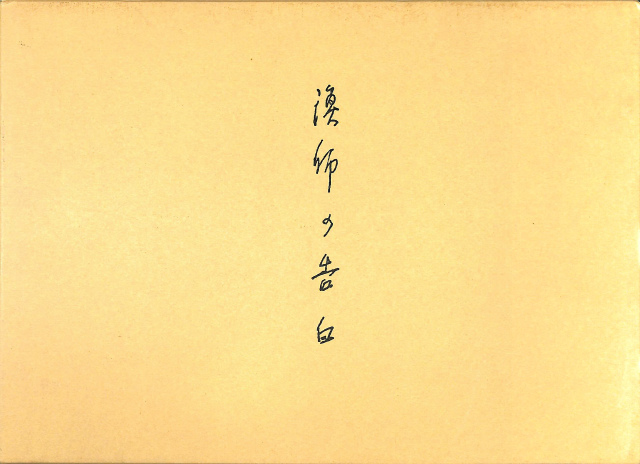 漁師の告白